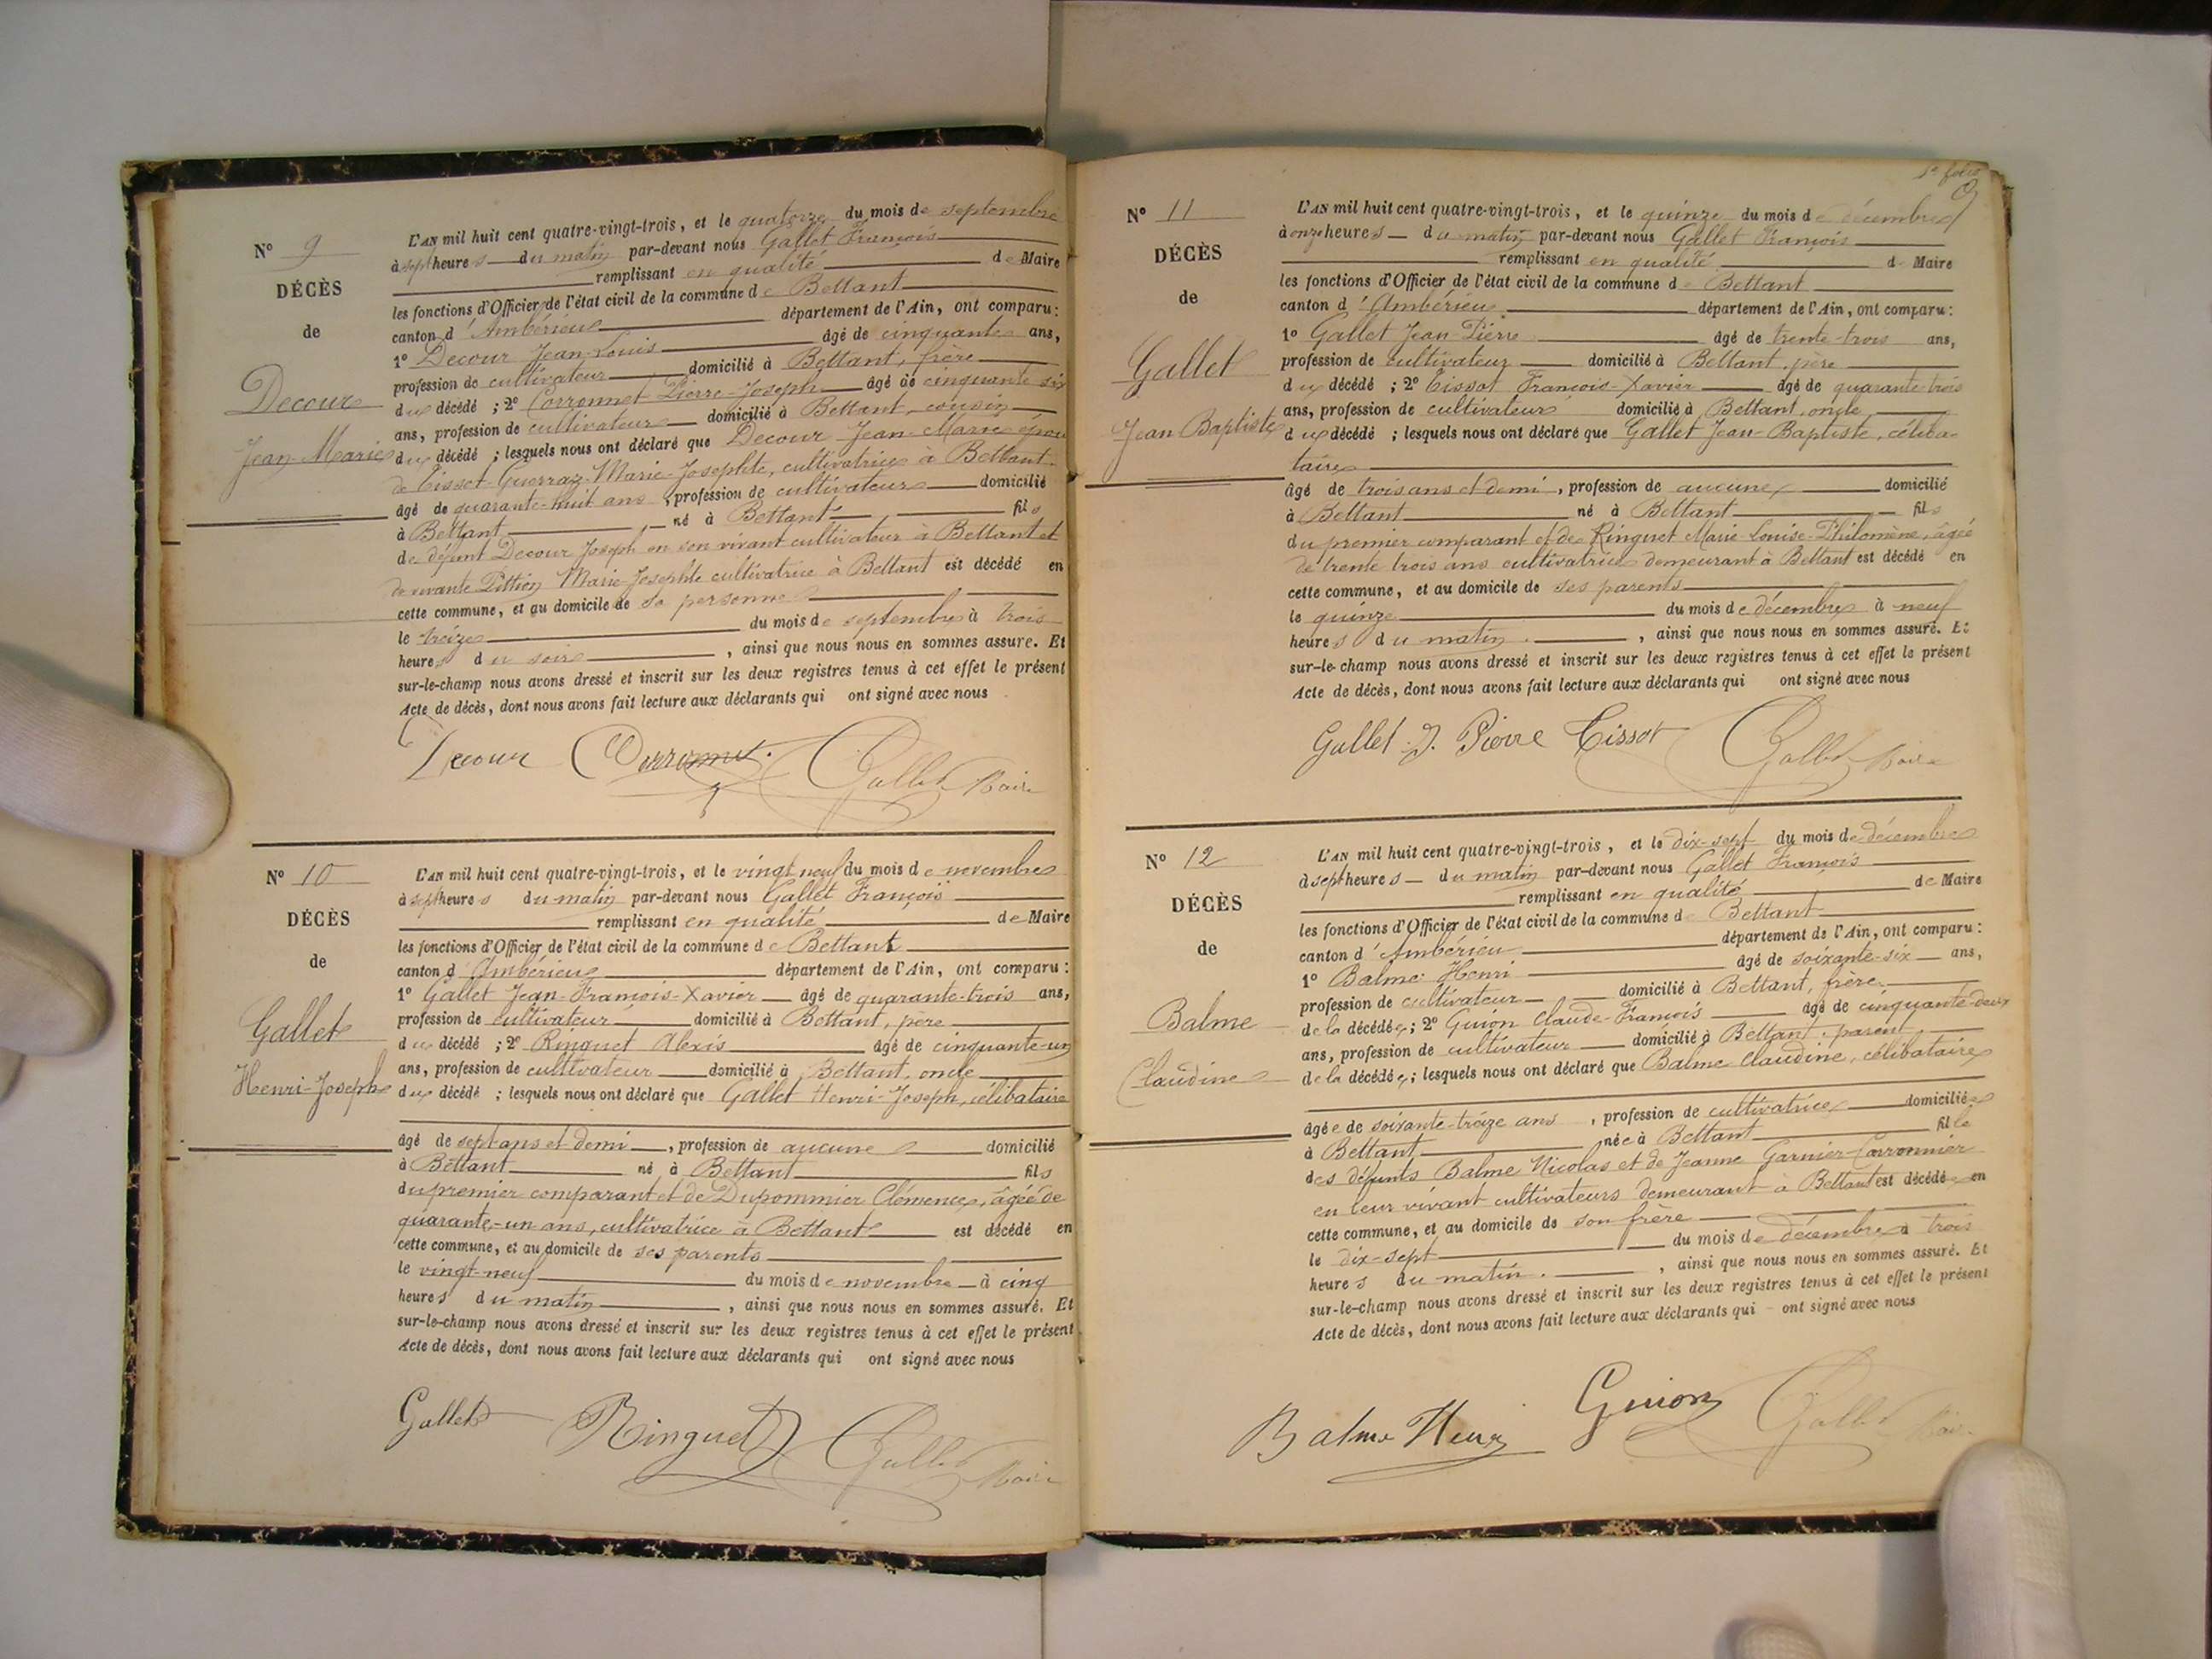 N° 9
DÉCÈS
de
Decour
Jean Marie
L'AN mil huit cent quatre-vingt-trois, et le quatorze du mois de septembre
à sept heures du matin par-devant nous Gallet François
remplissant en qualité de Maire
les fonctions d'Officier de l'état civil de la commune de Bettant
canton d'Ambérieu département de l'Ain, ont comparu :
1° Decour Jean-Louis âgé de cinquante ans,
profession de cultivateur domicilié à Bettant, frère
du décédé ; 2° Corronnet Pierre-Joseph âgé de cinquante six
ans, profession de cultivateur domicilié à Bettant, cousin
du décédé ; lesquels nous ont déclaré que Decour Jean-Marie époux
de Tissot-Guerraz Marie-Josephte, cultivatrice à Bettant
âgé de quarante-huit ans, profession de cultivateur domicilié
à Bettant, né à Bettant, fils
de défunt Decour Joseph en son vivant cultivateur à Bettant et
de vivante Pittion Marie-Josephte cultivatrice à Bettant est décédé en
cette commune, et au domicile de sa personne
le treize du mois de septembre à trois
heures du soir, ainsi que nous nous en sommes assuré. Et
sur-le-champ nous avons dressé et inscrit sur les deux registres tenus à cet effet le présent
Acte de décès, dont nous avons fait lecture aux déclarants qui ont signé avec nous
Decour Corronnet Gallet Maire
N° 10
DÉCÈS
de
Gallet
Henri-Joseph
L'AN mil huit cent quatre-vingt-trois, et le vingt neuf du mois de novembre
à sept heures du matin par-devant nous Gallet François
remplissant en qualité de Maire
les fonctions d'Officier de l'état civil de la commune de Bettant
canton d'Ambérieu département de l'Ain, ont comparu :
1° Gallet Jean-François-Xavier âgé de quarante-trois ans,
profession de cultivateur domicilié à Bettant, père
du décédé ; 2° Ringuet Alexis âgé de cinquante-un
ans, profession de cultivateur domicilié à Bettant, oncle
du décédé ; lesquels nous ont déclaré que Gallet Henri-Joseph, célibataire
âgé de sept ans et demi, profession de aucune domicilié
à Bettant né à Bettant fils
du premier comparant et de Dupommier Clémence, âgée de
quarante-un ans, cultivatrice à Bettant est décédé en
cette commune, et au domicile de ses parents
le vingt-neuf du mois de novembre à cinq
heures du matin, ainsi que nous nous en sommes assuré. Et
sur-le-champ nous avons dressé et inscrit sur les deux registres tenus à cet effet le présent
Acte de décès, dont nous avons fait lecture aux déclarants qui ont signé avec nous
Gallet Ringuet Gallet Maire
5e folio
N° 11
DÉCÈS
de
Gallet
Jean Baptiste
L'AN mil huit cent quatre-vingt-trois, et le quinze du mois de décembre
à onze heures du matin par-devant nous Gallet François
remplissant en qualité de Maire
les fonctions d'Officier de l'état civil de la commune de Bettant
canton d'Ambérieu département de l'Ain, ont comparu :
1° Gallet Jean-Pierre âgé de trente-trois ans,
profession de cultivateur domicilié à Bettant, père
du décédé ; 2° Tissot François-Xavier âgé de quarante-trois
ans, profession de cultivateur domicilié à Bettant, oncle
du décédé ; lesquels nous ont déclaré que Gallet Jean-Baptiste, céliba-
taire
âgé de trois ans et demi, profession de aucune domicilié
à Bettant né à Bettant fils
du premier comparant et de Ringuet Marie-Louise-Philomène, âgée
de trente trois ans cultivatrice demeurant à Bettant est décédé en
cette commune, et au domicile de ses parents
le quinze du mois de décembre à neuf
heures du matin, ainsi que nous nous en sommes assuré. Et
sur-le-champ nous avons dressé et inscrit sur les deux registres tenus à cet effet le présent
Acte de décès, dont nous avons fait lecture aux déclarants qui ont signé avec nous
Gallet J. Pierre Tissot Gallet Maire
N° 12
DÉCÈS
de
Balme
Claudine
L'AN mil huit cent quatre-vingt-trois, et le dix-sept du mois de décembre
à sept heures du matin par-devant nous Gallet François
remplissant en qualité de Maire
les fonctions d'Officier de l'état civil de la commune de Bettant
canton d'Ambérieu département de l'Ain, ont comparu :
1° Balme Henri âgé de soixante-six ans,
profession de cultivateur domicilié à Bettant, frère
de la décédée ; 2° Guion Claude-François âgé de cinquante-deux
ans, profession de cultivateur domicilié à Bettant, parent
de la décédée ; lesquels nous ont déclaré que Balme Claudine, célibataire
âgée de soixante-treize ans, profession de cultivatrice domiciliée
à Bettant, née à Bettant fille
des défunts Balme Nicolas et de Jeanne Garnier-Corronnier
en leur vivant cultivateurs demeurant à Bettant est décédée en
cette commune, et au domicile de son frère
le dix-sept du mois de décembre à trois
heures du matin, ainsi que nous nous en sommes assuré. Et
sur-le-champ nous avons dressé et inscrit sur les deux registres tenus à cet effet le présent
Acte de décès, dont nous avons fait lecture aux déclarants qui ont signé avec nous
Balme Henri Guion Gallet Maire